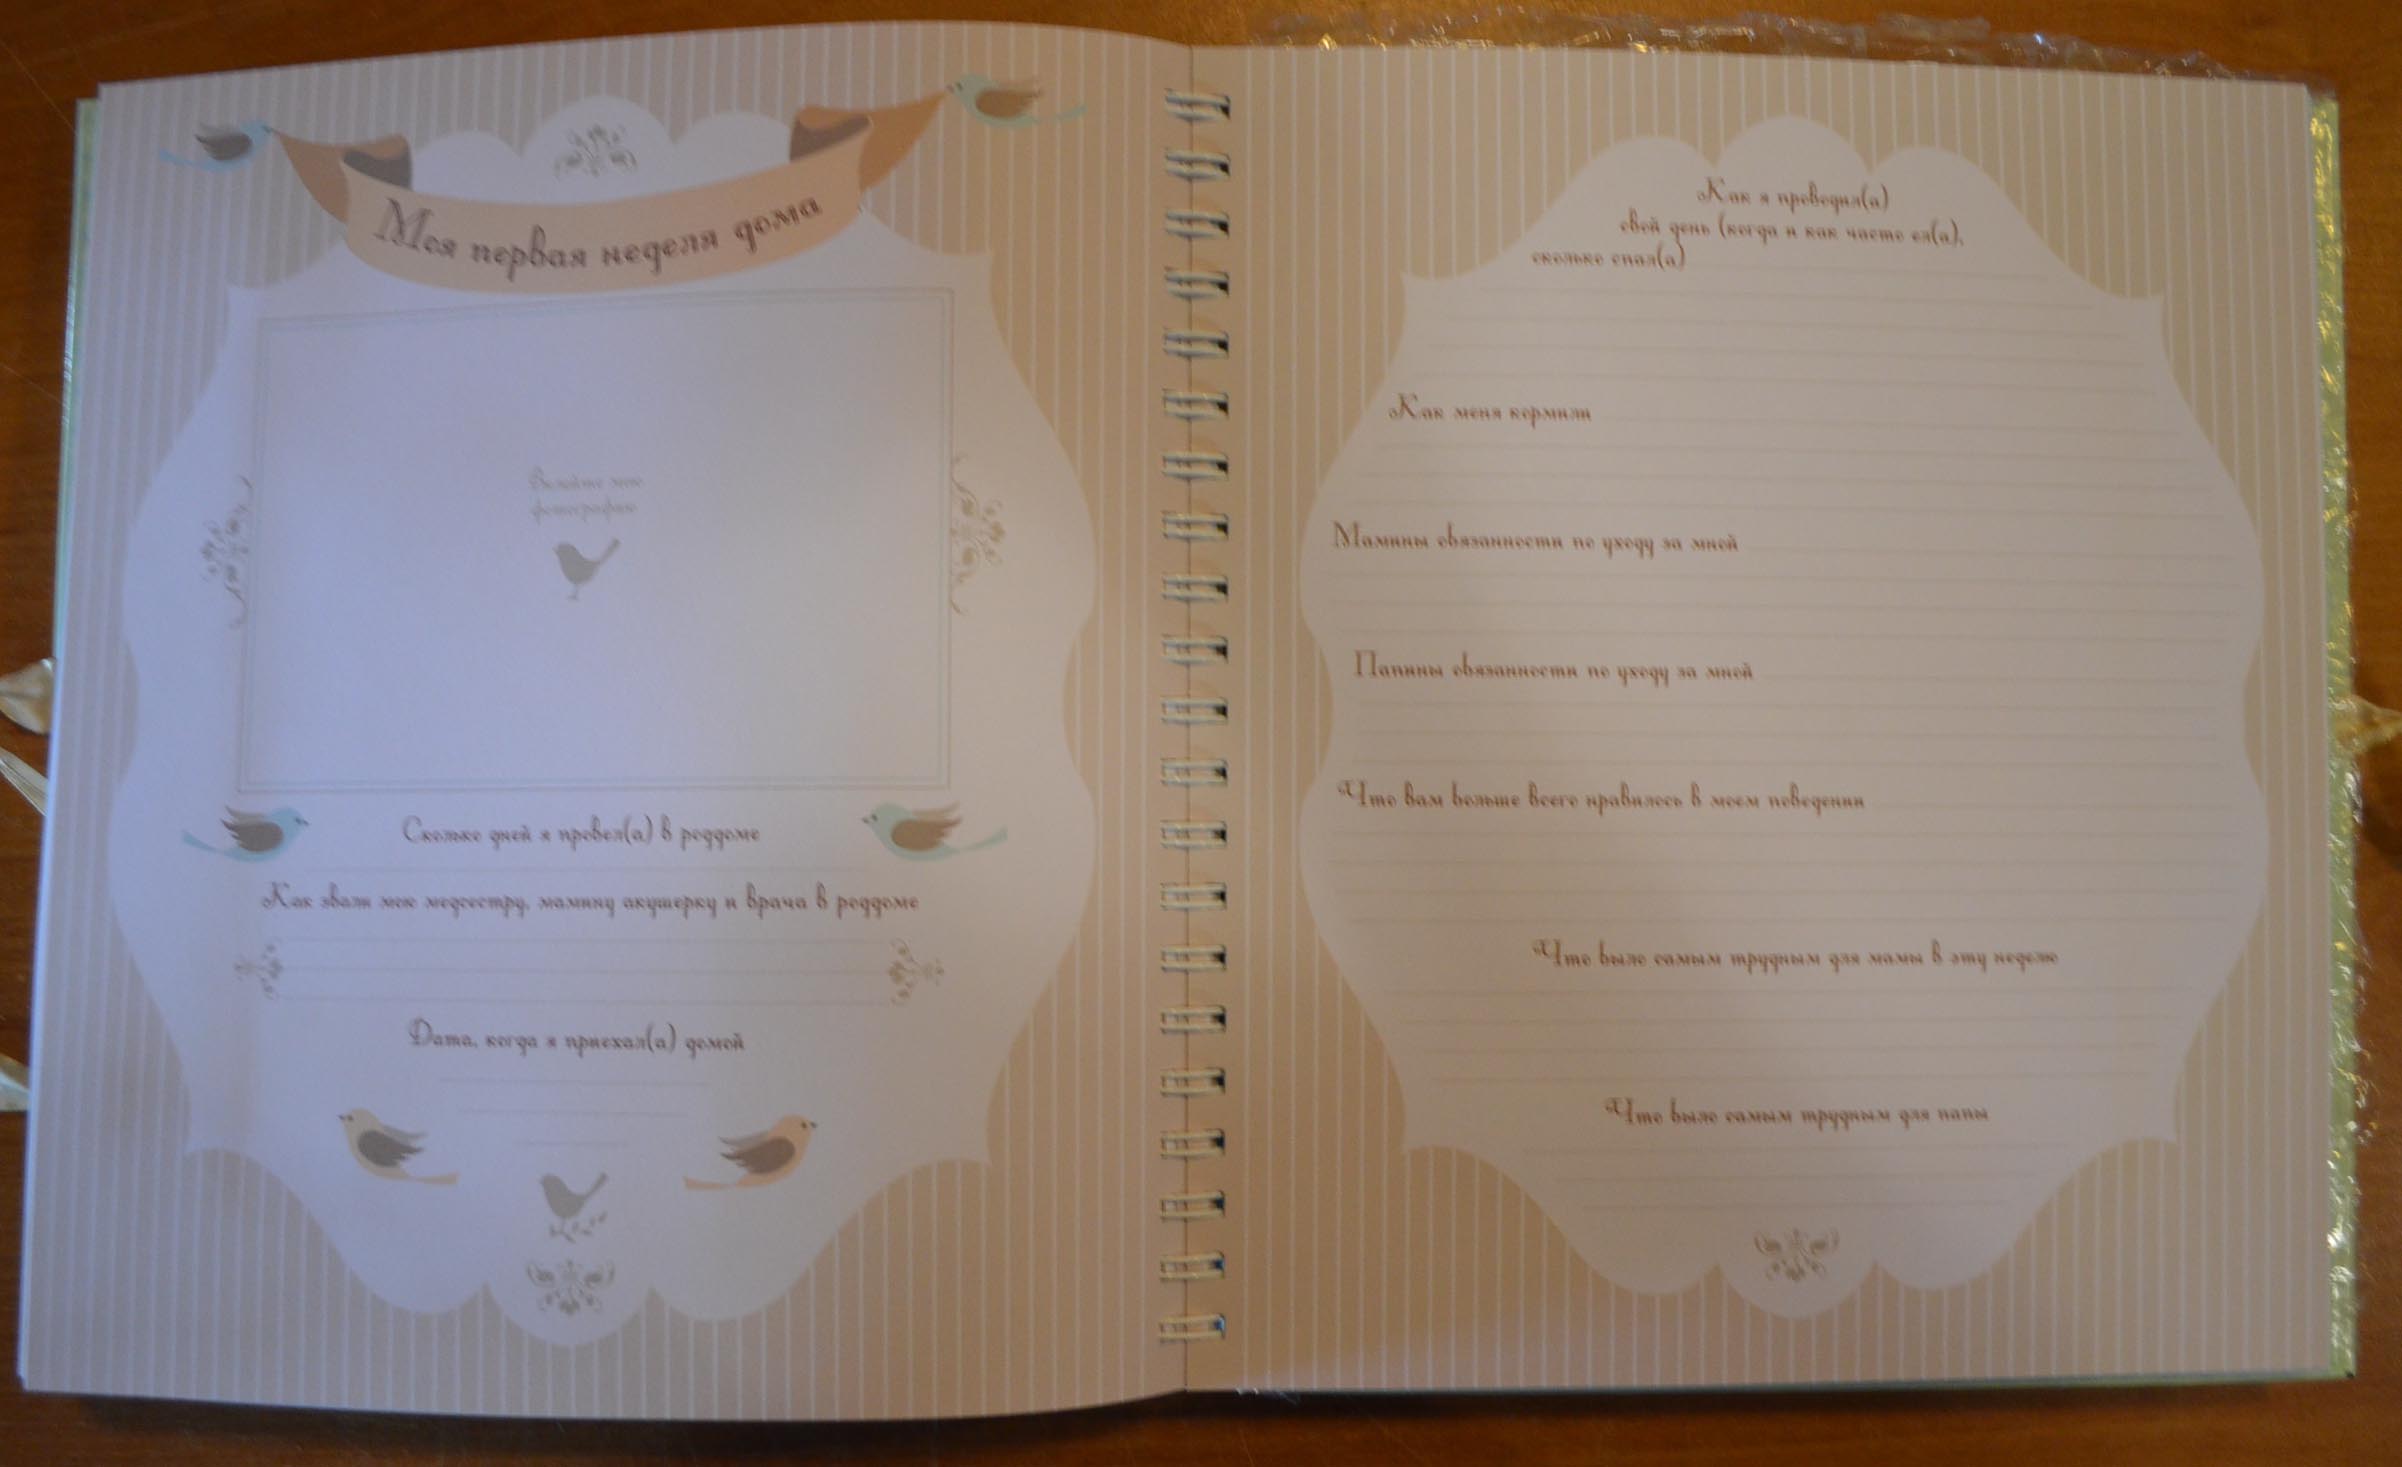 Моя первая неделя дома
Вклейте мою
фотографию
Сколько дней я провел(а) в роддоме
Как звали мою медсестру, мамину акушерку и врача в роддоме
Дата, когда я приехал(а) домой
Как я проводил(а)
свой день (когда и как часто ел(а),
сколько спал(а)
Как меня кормили
Мамины обязанности по уходу за мной
Папины обязанности по уходу за мной
Что вам больше всего нравилось в моем поведении
Что было самым трудным для мамы в эту неделю
Что было самым трудным для папы